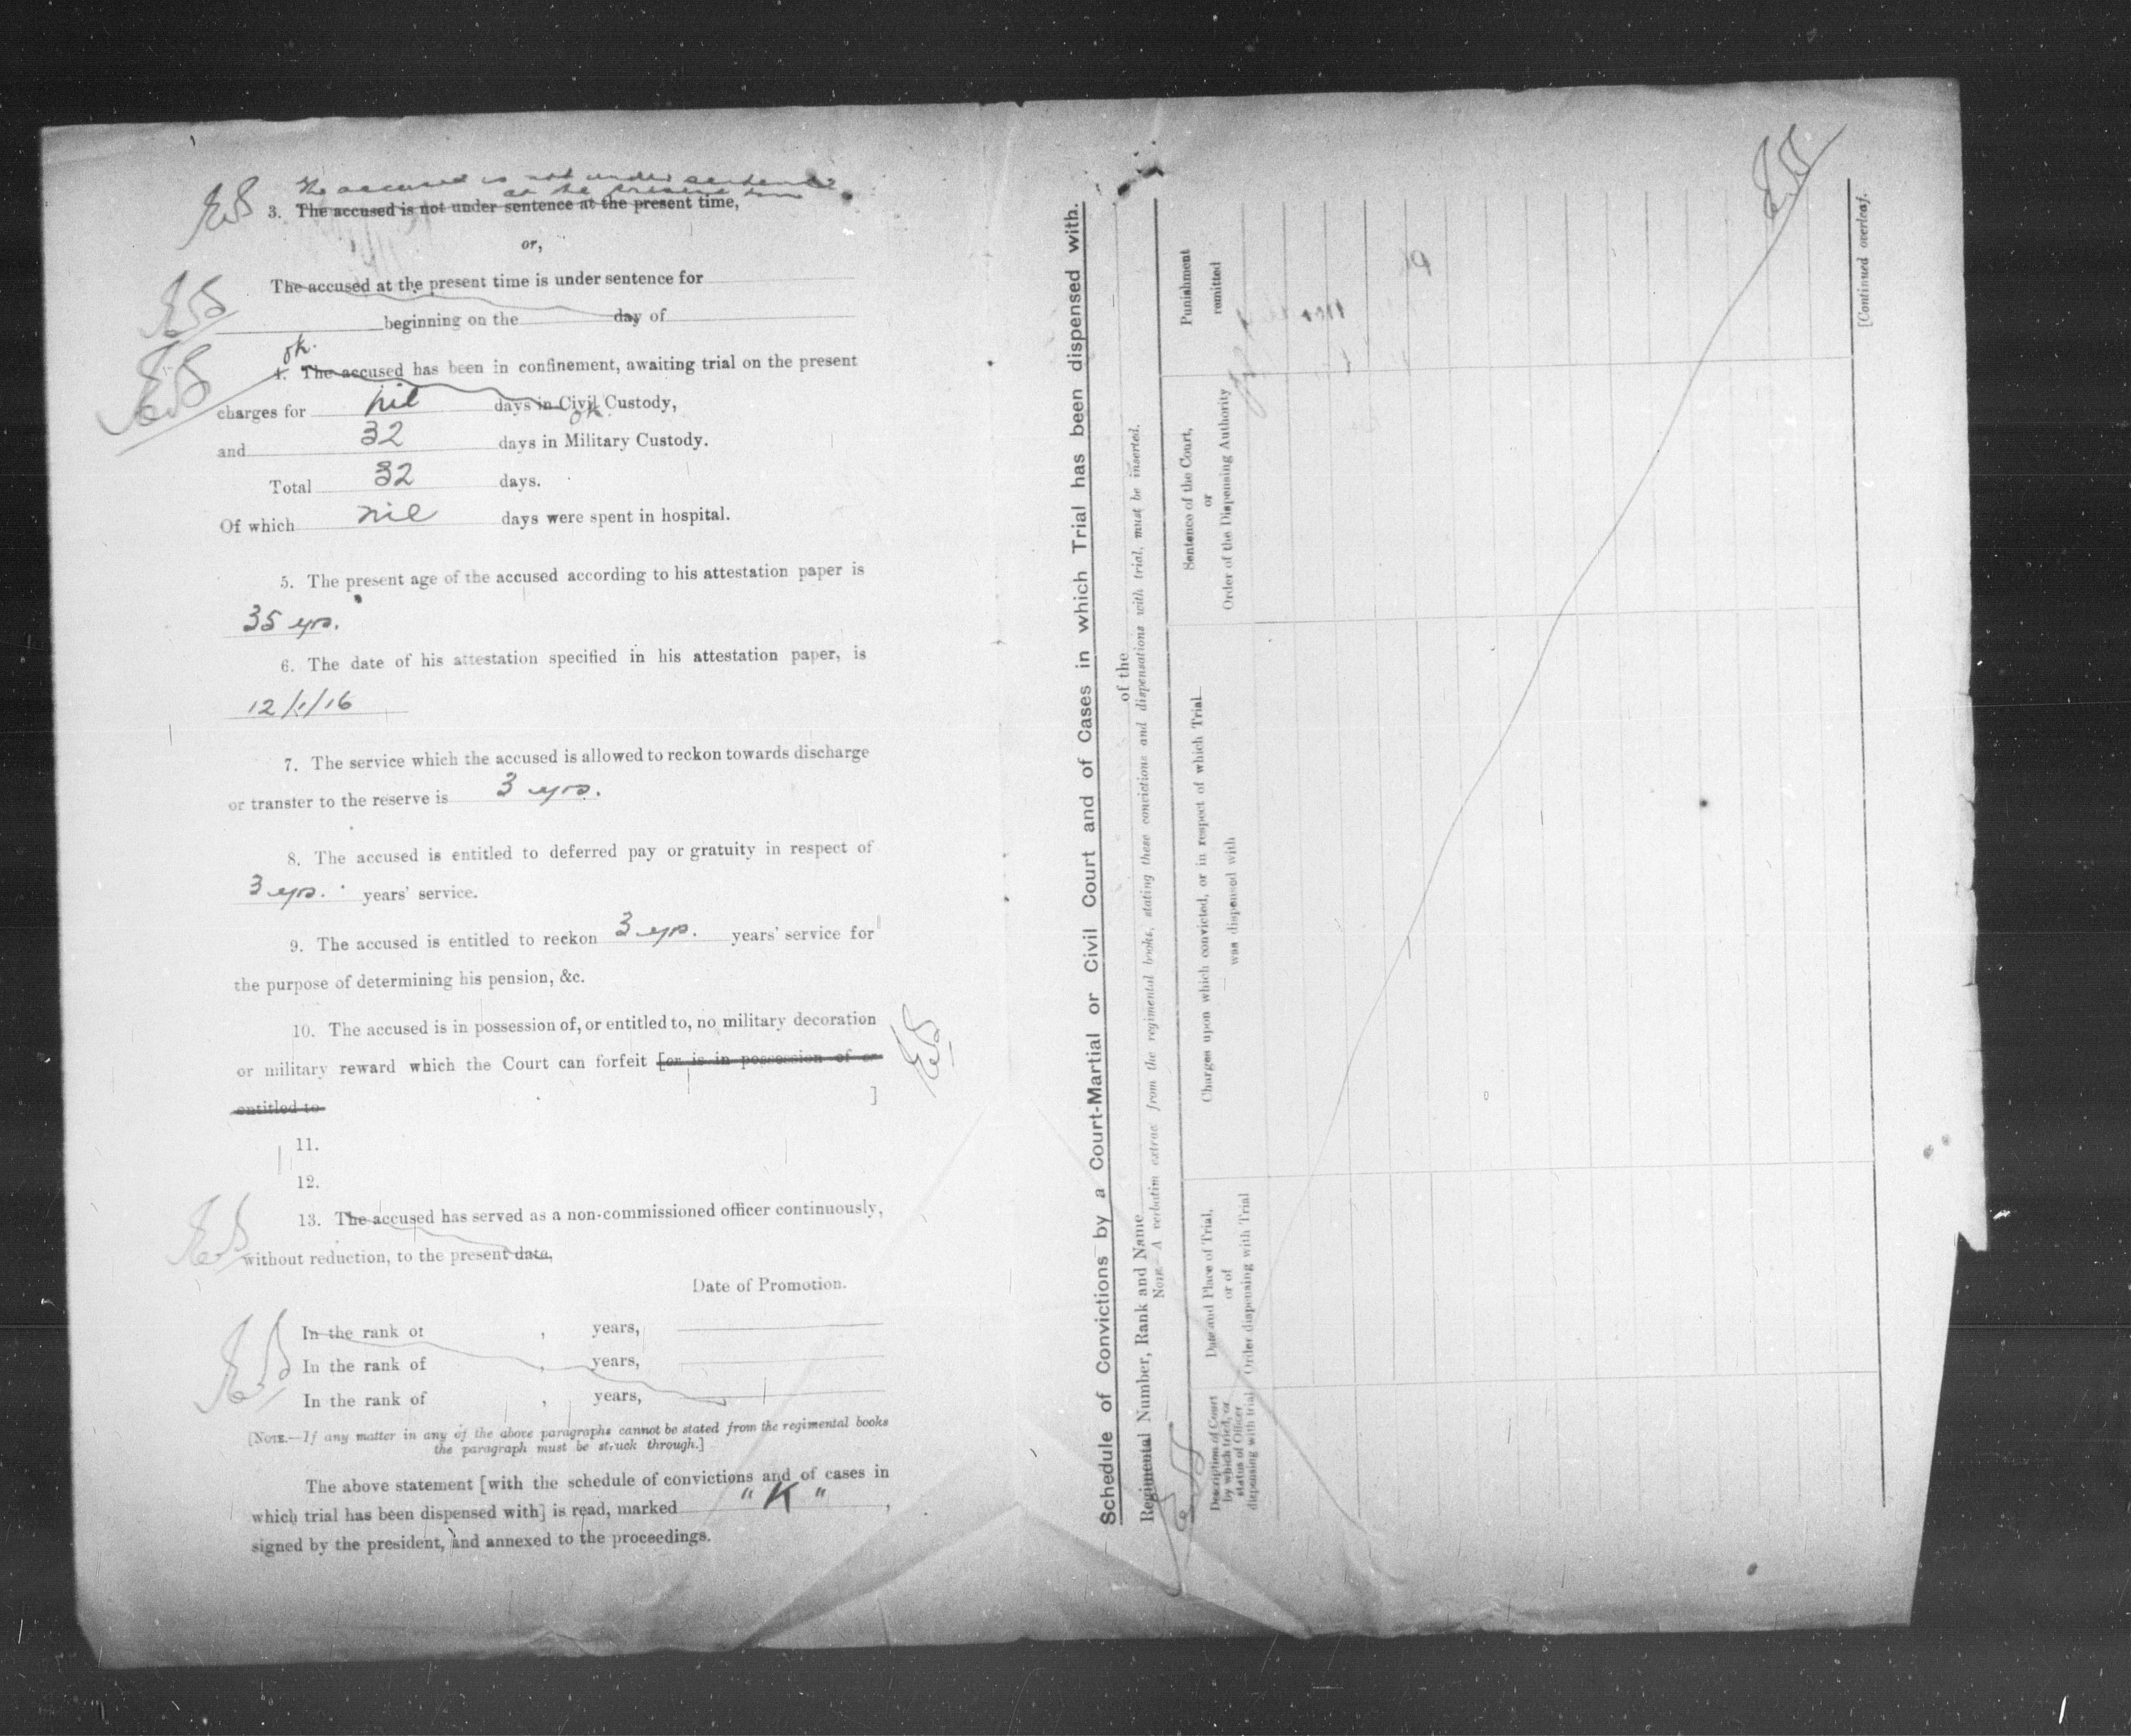 The accused is not under sentence
at the present time
3. The accused is not under sentence at the present time,
or,
The accused at the present time is under sentence for
beginning on the day of
ok.
4. The accused has been in confinement, awaiting trial on the present
charges for nil days in Civil Custody,
ok.
and 32 days in Military Custody.
Total 32 days.
Of which nil days were spent in hospital.
5. The present age of the accused according to his attestation paper is
35 yrs.
6. The date of his attestation specified in his attestation paper, is
12/1/16
7. The service which the accused is allowed to reckon towards discharge
or transfer to the reserve is 3 yrs.
8. The accused is entitled to deferred pay or gratuity in respect of
3 yrs. years' service.
9. The accused is entitled to reckon 3 yrs. years' service for
the purpose of determining his pension, &c.
10. The accused is in possession of, or entitled to, no military decoration
or military reward which the Court can forfeit [or is in possession of or
entitled to ]
11.
12.
13. The accused has served as a non-commissioned officer continuously,
without reduction, to the present date,
Date of Promotion.
In the rank of , years,
In the rank of , years,
In the rank of , years,
[NOTE.—If any matter in any of the above paragraphs cannot be stated from the regimental books
the paragraph must be struck through.]
The above statement [with the schedule of convictions and of cases in
which trial has been dispensed with] is read, marked "K",
signed by the president, and annexed to the proceedings.
Schedule of Convictions by a Court-Martial or Civil Court and of Cases in which Trial has been dispensed with.
Regimental Number, Rank and Name of the
NOTE.—A verbatim extract from the regimental books, stating these convictions and dispensations with trial, must be inserted.
Description of Court
by which tried, or
status of Officer
dispensing with trial
Date and Place of Trial,
or of
Order dispensing with Trial
Charges upon which convicted, or in respect of which Trial
was dispensed with
Sentence of the Court,
or
Order of the Dispensing Authority
Punishment
remitted
[Continued overleaf.